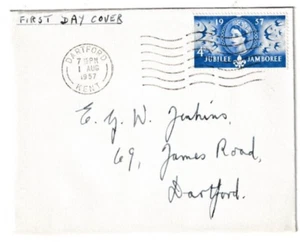 FIRST DAY COVER
DARTFORD
7 15 PM
1 AUG
1957
KENT
19 57
4d
JUBILEE JAMBOREE
E. G. W. Jenkins,
69, James Road,
Dartford.